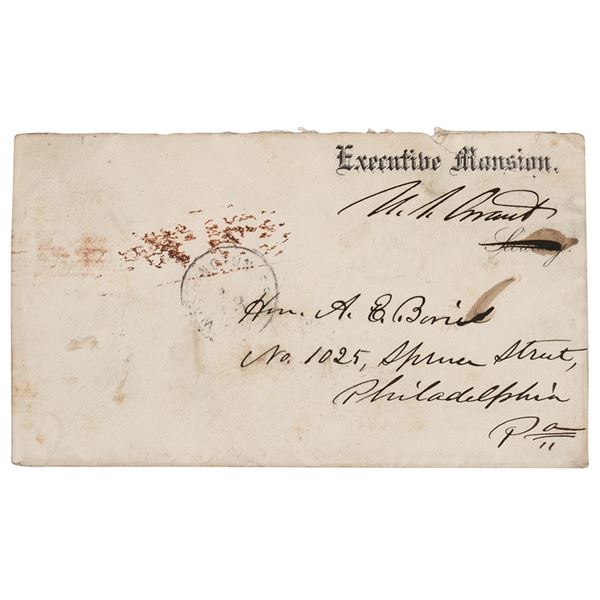 Executive Mansion.
U. S. Grant
Hon. A. E. Borie
No. 1025, Spruce Street,
Philadelphia
Pa